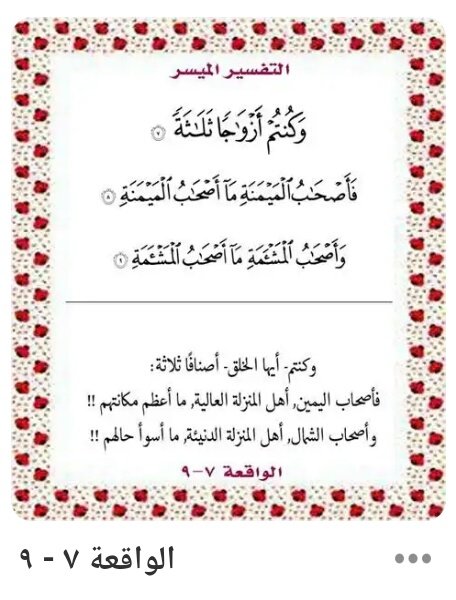 التفسير الميسر
وَكُنتُمْ أَزْوَٰجًا ثَلَـٰثَةً ٧
فَأَصْحَـٰبُ ٱلْمَيْمَنَةِ مَآ أَصْحَـٰبُ ٱلْمَيْمَنَةِ ٨
وَأَصْحَـٰبُ ٱلْمَشْـَٔمَةِ مَآ أَصْحَـٰبُ ٱلْمَشْـَٔمَةِ ٩
وكنتم- أيها الخلق- أصنافًا ثلاثة:
فأصحاب اليمين, أهل المنزلة العالية, ما أعظم مكانتهم !!
وأصحاب الشمال, أهل المنزلة الدنيئة, ما أسوأ حالهم !!
الواقعة ٧-٩
الواقعة ٧ - ٩